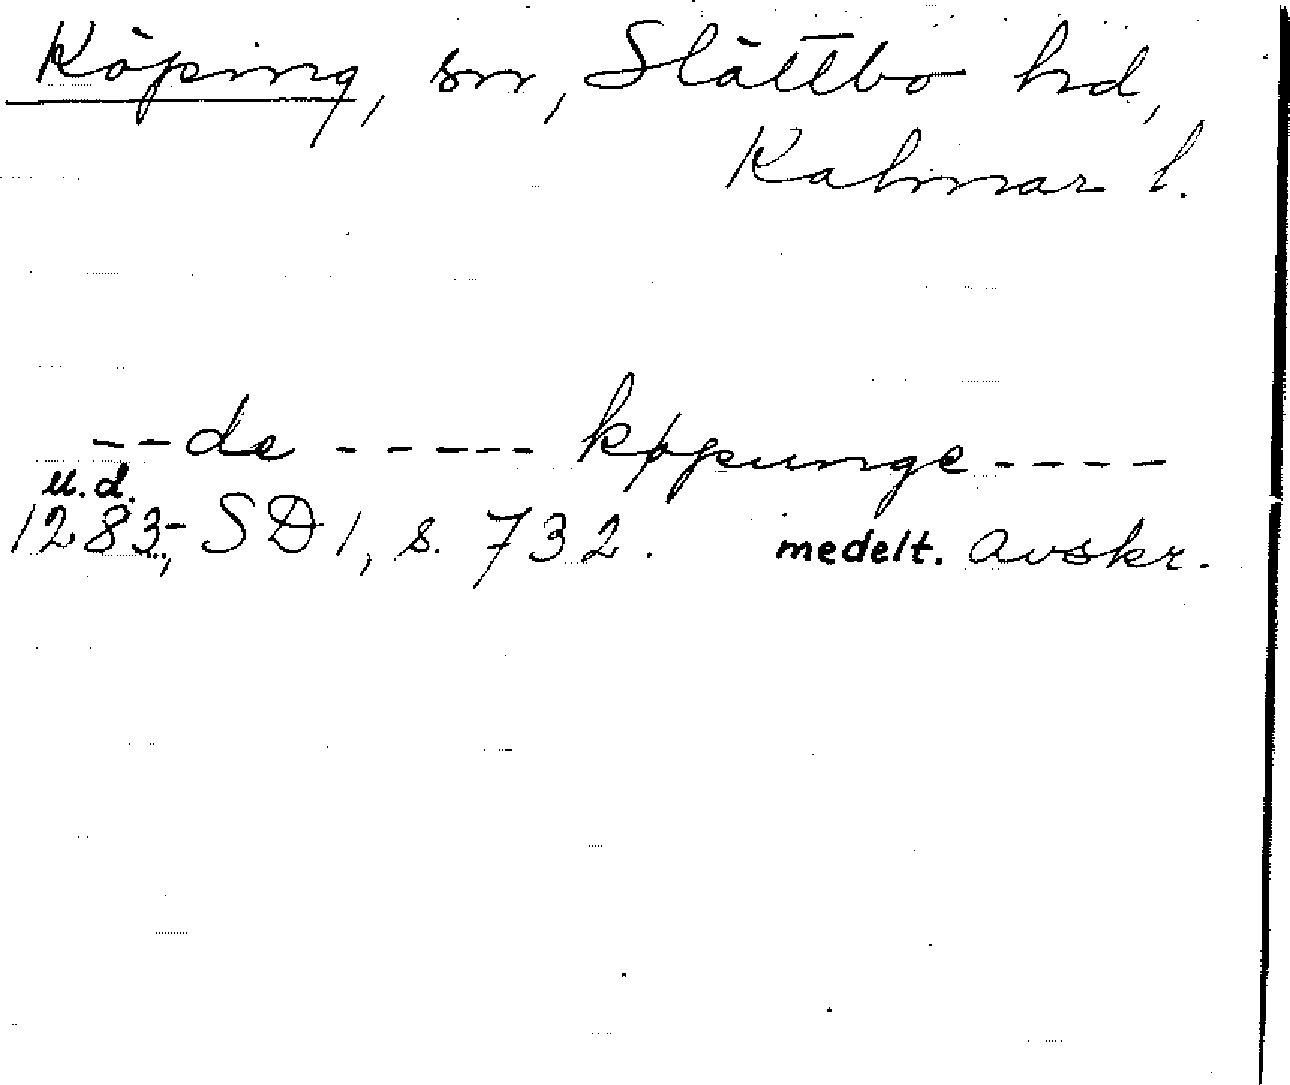 Köping, sn, Slättbo hd,
Kalmar l.
--de ----- køpunge----
u.d.
1283-, SD 1, s. 732. medelt. avskr.